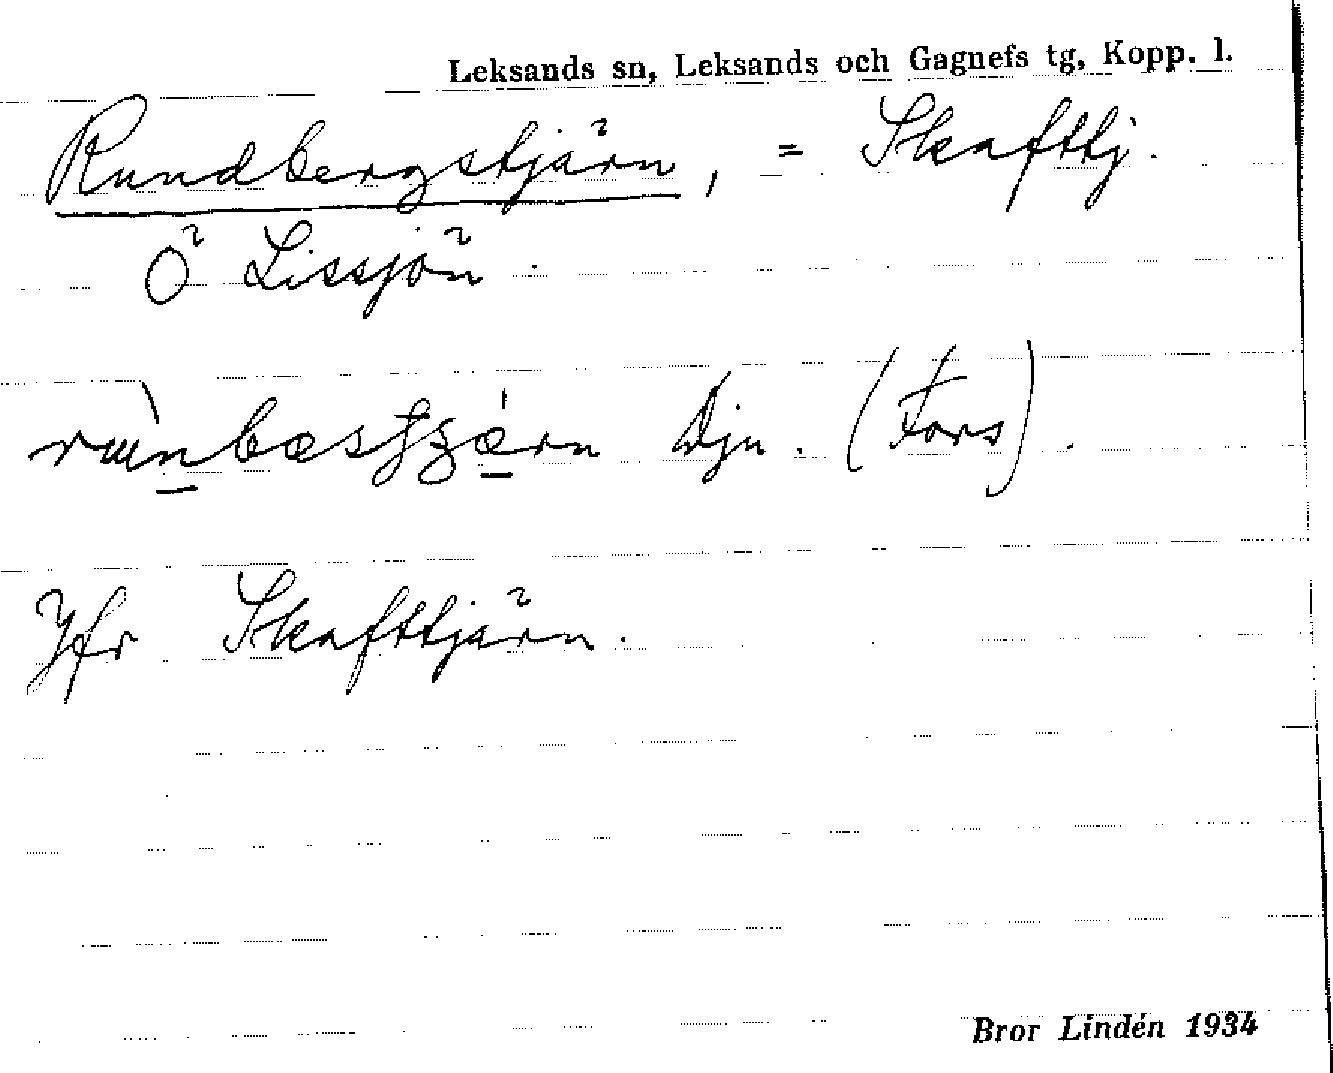 Leksands sn, Leksands och Gagnefs tg, Kopp. l.
Rundbergstjärn, = Skafttj.
Ö Lissjön.
Djn. (Fors).
Jfr Skafttjärn.
Bror Lindén 1934